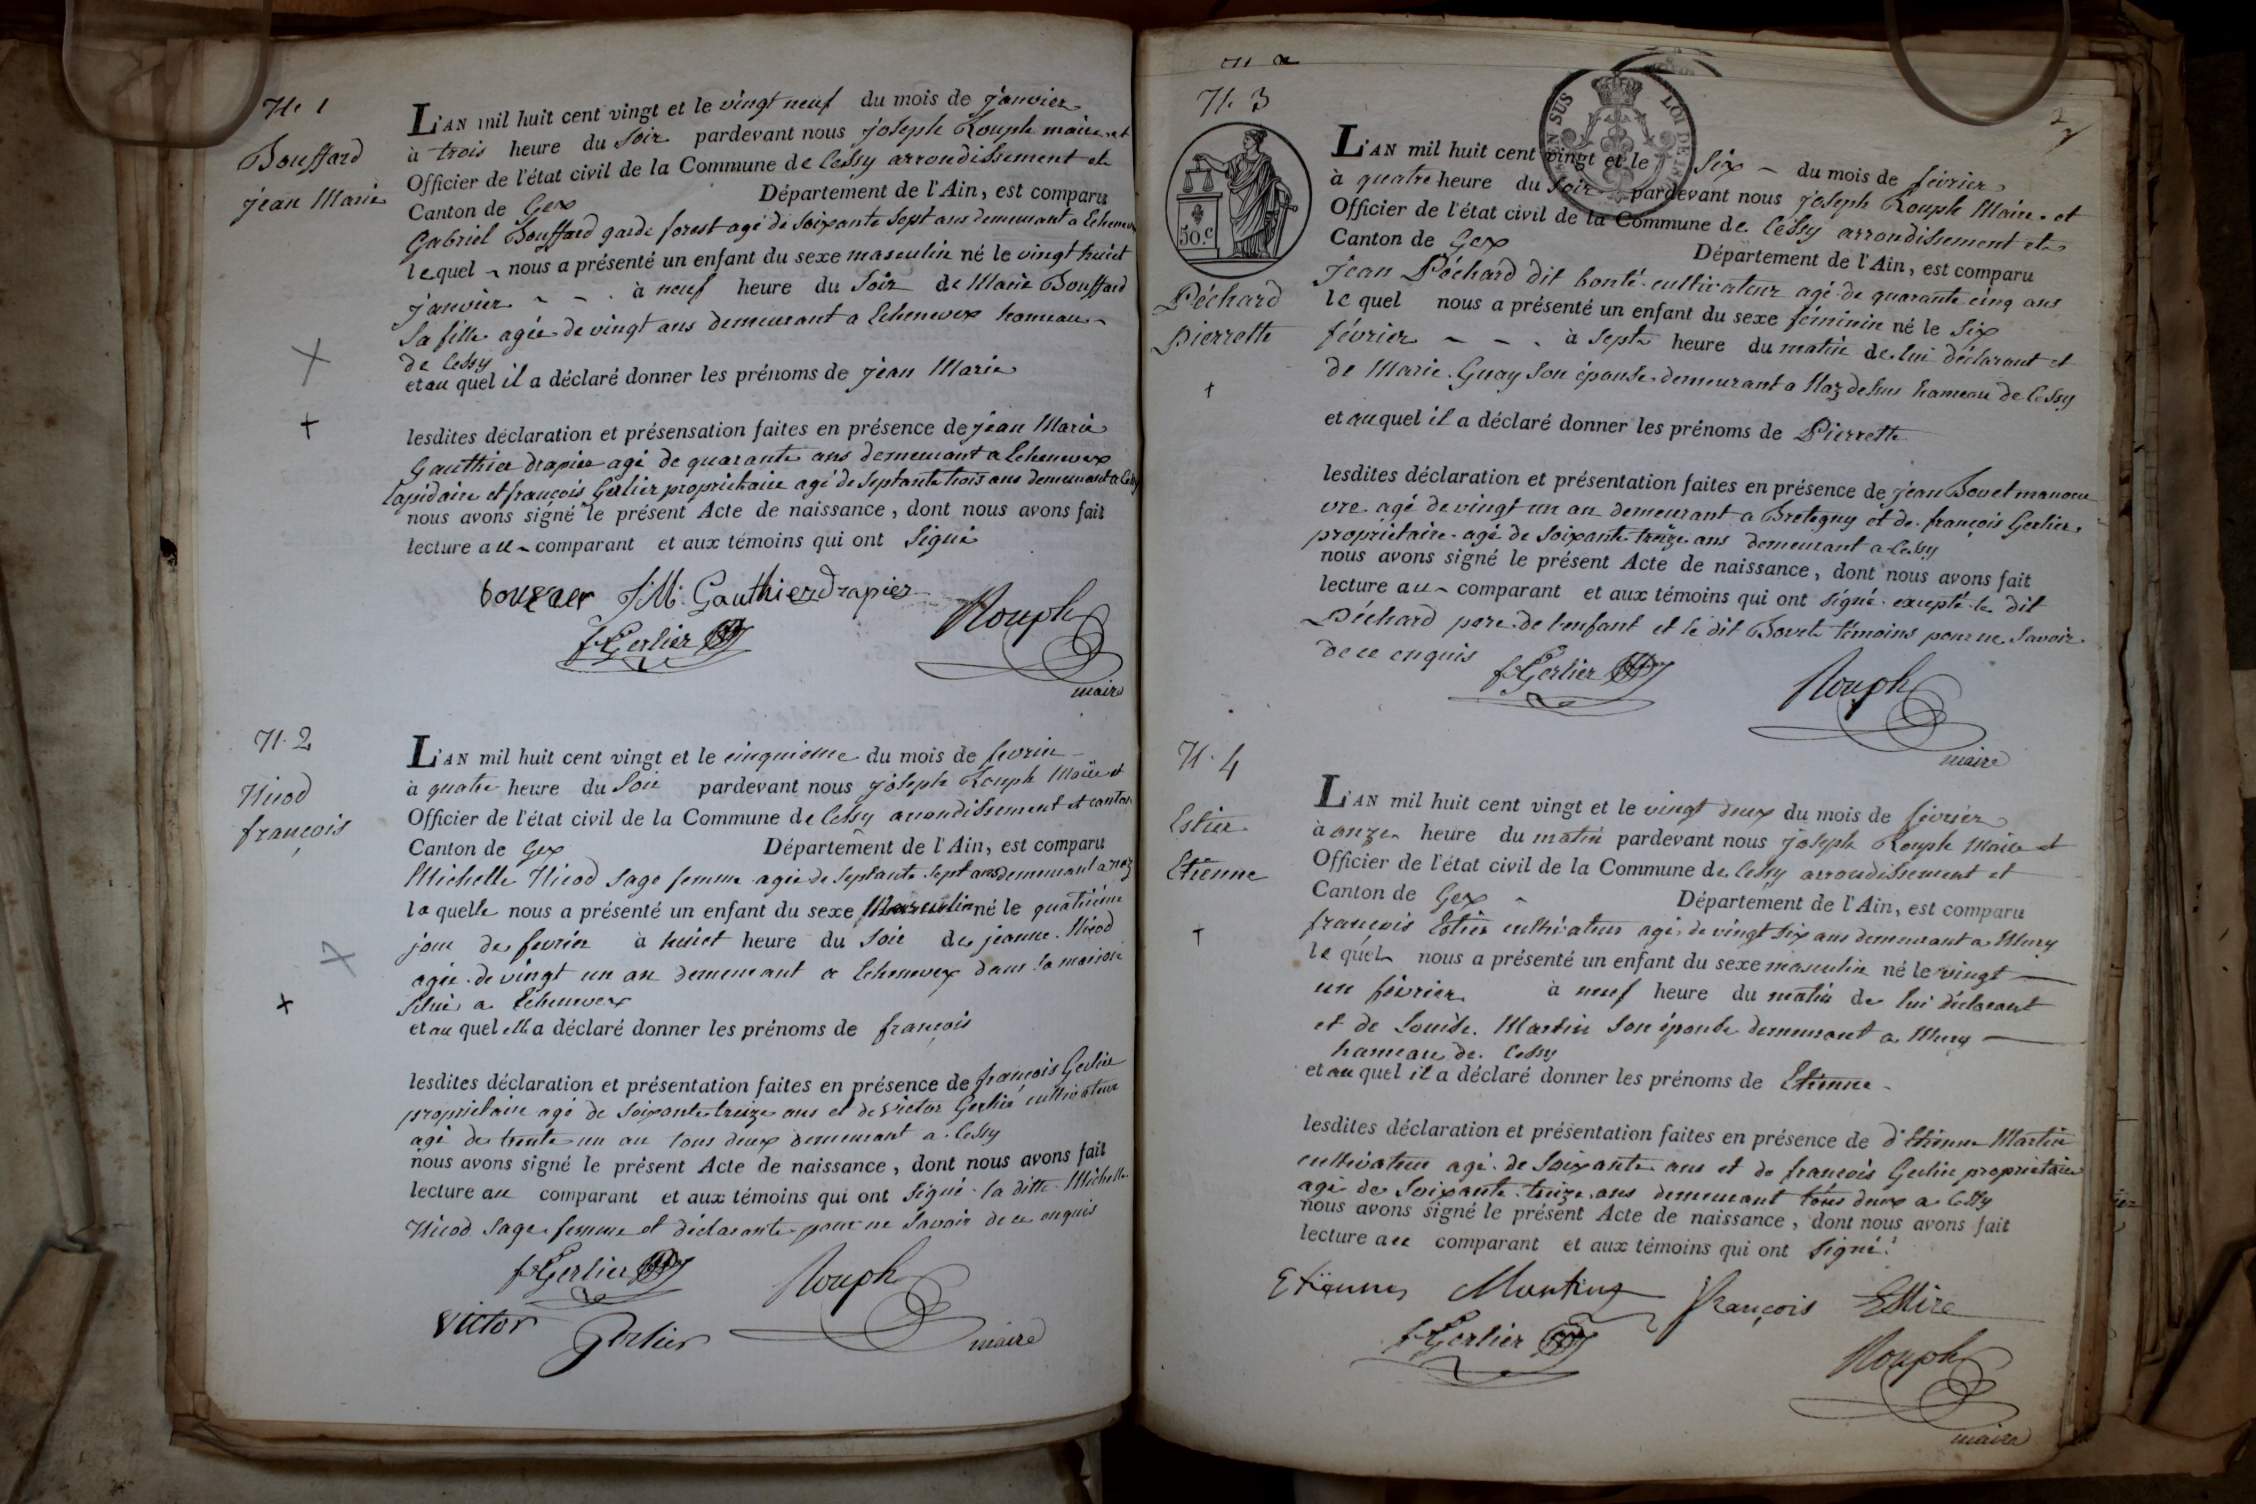 N. 1
Bouffard
jean Marie
L'AN mil huit cent vingt et le vingt neuf du mois de janvier
à trois heure du Soir pardevant nous joseph Rouph maire et
Officier de l'état civil de la Commune de Cessy arrondissement et
Canton de Gex Département de l'Ain, est comparu
Gabriel Bouffard garde forest agé de soixante sept ans demeurant a Echenevex
lequel nous a présenté un enfant du sexe masculin né le vingt huict
janvier à neuf heure du Soir de Marie Bouffard
sa fille agée de vingt ans demeurant a Echenevex hameau
de Cessy
et au quel il a déclaré donner les prénoms de jean Marie
lesdites déclaration et présensation faites en présence de jean Marie
Gauthier drapier agé de quarante ans demeurant a Echenevex
lapidaire et françois Gerlier propriétaire agé de septante trois ans demeurant a Cessy
nous avons signé le présent Acte de naissance, dont nous avons fait
lecture au comparant et aux témoins qui ont Signé
J.M. Gauthier drapier
f Gerlier
Rouph
maire
N. 2
Nicod
françois
L'AN mil huit cent vingt et le cinquieme du mois de fevrier
à quatre heure du Soir pardevant nous joseph Rouph Maire et
Officier de l'état civil de la Commune de Cessy arrondissement et canton
Canton de Gex Département de l'Ain, est comparu
Michelle Nicod sage femme agée de septante sept ans demeurant a naz
la quelle nous a présenté un enfant du sexe Masculin né le quatrième
jour de fevrier à huict heure du Soir de jeanne Nicod
agée de vingt un an demeurant a Echenevex dans sa maison
située a Echenevex
et au quel elle a déclaré donner les prénoms de françois
lesdites déclaration et présentation faites en présence de françois Gerlier
propriétaire agé de soixante treize ans et de victor Gerlier cultivateur
agé de trente un an tous deux demeurant a Cessy
nous avons signé le présent Acte de naissance, dont nous avons fait
lecture au comparant et aux témoins qui ont Signé la ditte Michelle
Nicod sage femme et déclarante pour ne Savoir de ce enquis
f Gerlier
Rouph
victor Gerlier
maire
N. 3
50.c
LOI DE
Péchard
Pierrette
L'AN mil huit cent vingt et le Six du mois de février
à quatre heure du Soir pardevant nous joseph Rouph Maire et
Officier de l'état civil de la Commune de Cessy arrondissement et
Canton de Gex Département de l'Ain, est comparu
jean Péchard dit bonté cultivateur agé de quarante cinq ans
le quel nous a présenté un enfant du sexe féminin né le Six
février à Sept heure du matin de lui déclarant et
de Marie Guay Son épouse demeurant a Naz dessus hameau de Cessy
et auquel il a déclaré donner les prénoms de Pierrette
lesdites déclaration et présentation faites en présence de jean Bovet manoeu
vre agé de vingt un an demeurant a Bretegny et de françois Gerlier
propriétaire agé de soixante treize ans demeurant a Cessy
nous avons signé le présent Acte de naissance, dont nous avons fait
lecture au comparant et aux témoins qui ont signé excepté le dit
Péchard pere de lenfant et le dit Bovet témoins pour ne Savoir
de ce enquis
f Gerlier
Rouph
maire
N. 4
Estier
Etienne
L'AN mil huit cent vingt et le vingt deux du mois de février
à onze heure du matin pardevant nous joseph Rouph Maire et
Officier de l'état civil de la Commune de Cessy arrondissement et
Canton de Gex Département de l'Ain, est comparu
françois Estier cultivateur agé de vingt six ans demeurant a Mury
le quel nous a présenté un enfant du sexe masculin né le vingt
un février à neuf heure du matin de lui déclarant
et de Louise Martin Son épouse demeurant a Mury
hameau de Cessy
et au quel il a déclaré donner les prénoms de Etienne
lesdites déclaration et présentation faites en présence de d'Etienne Martin
cultivateur agé de soixante ans et de françois Gerlier propriétaire
agé de Soixante treize ans demeurant tous deux a Cessy
nous avons signé le présent Acte de naissance, dont nous avons fait
lecture au comparant et aux témoins qui ont signé
Etienne Martin françois Estire
f Gerlier
Rouph
maire